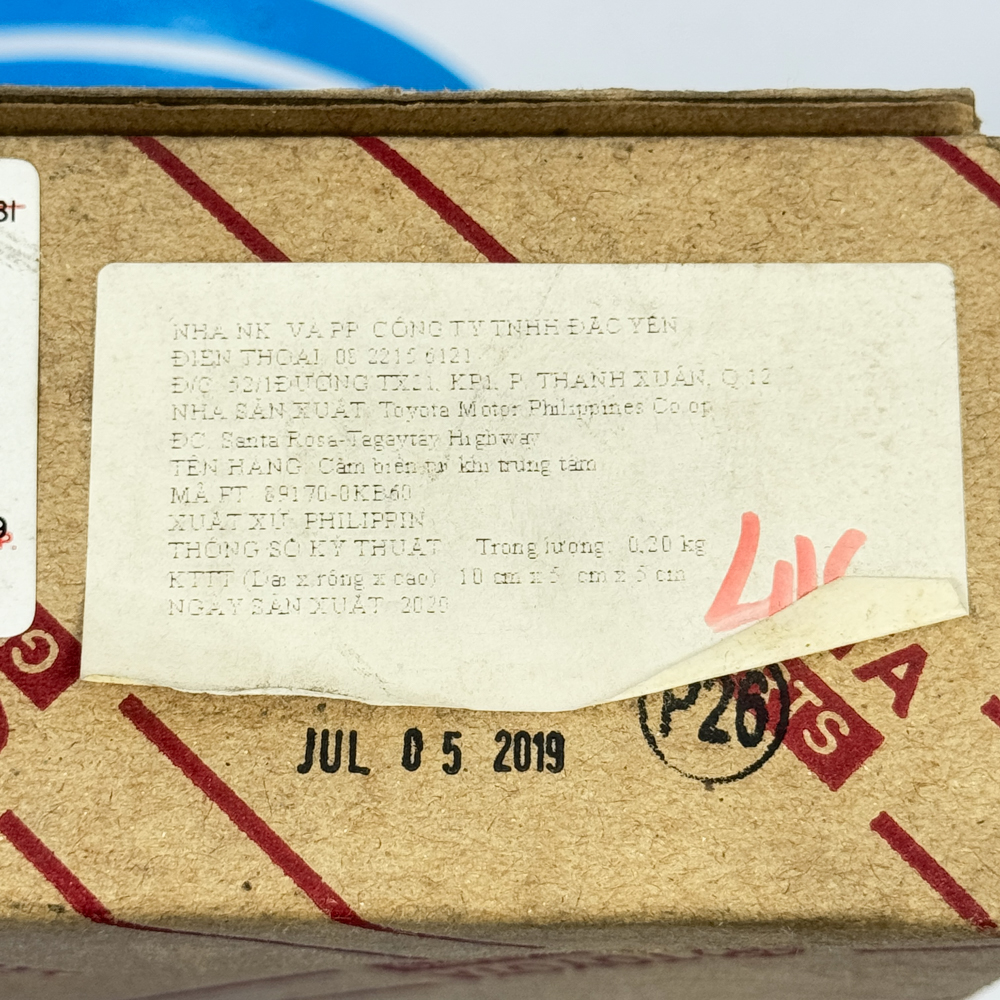 81
NHA NK VA PP CÔNG TY TNHH ĐÀO YÊN
ĐIEN THOAI 08 2215 6121
Đ/C 52/1 ĐUONG TX21, KP1, P. THANH XUÂN, Q 12
NHA SẢN XUẤT Toyota Motor Philippines Co op
ĐC. Santa Rosa-Tagaytay Highway
TÊN HANG Cảm biến khí trung tâm
MÃ PT 89170-0KB60
XUẤT XỨ PHILIPPIN
THÔNG SỐ KỸ THUẬT Trong lương: 0,20 kg
KTTT (Dai x rông x cao) 10 cm x 5 cm x 5 cm
NGAY SẢN XUẤT 2020
9
JUL 05 2019
P26